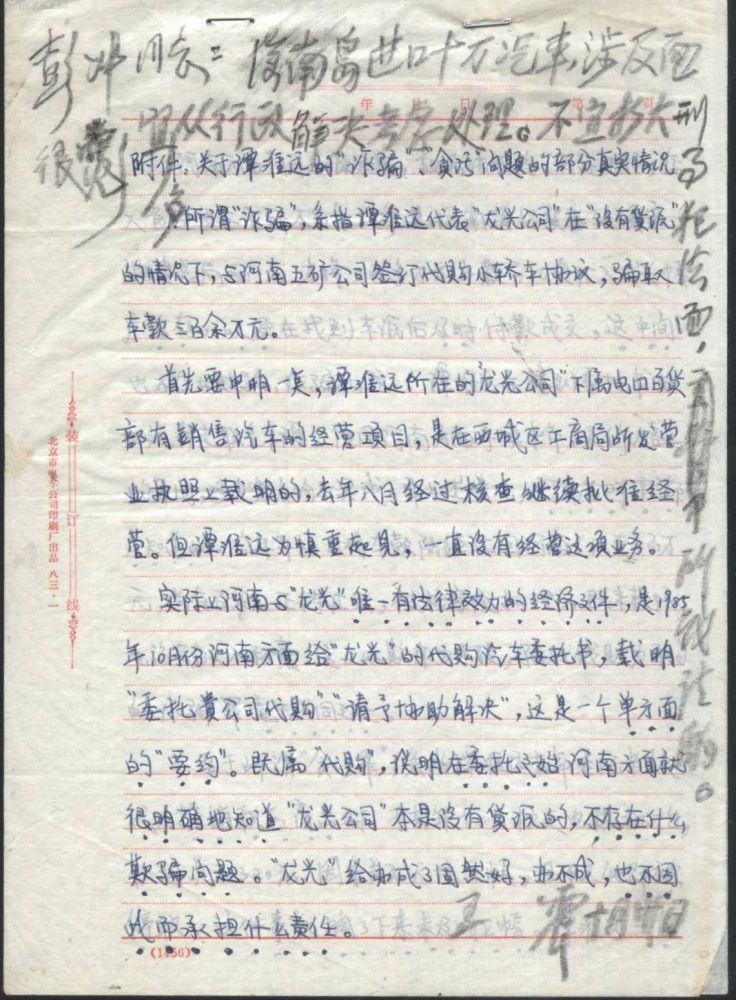 彭冲同志：海南岛进口十万汽车，涉及面
很宽，宜从行政解决考虑处理。不宜扩大
刑事犯法面，
所说请酌。
年 月 日 第 页
附件，关于谭准远的"诈骗""贪污"问题的部分真实情况
所谓"诈骗"，系指谭准远代表"龙光公司"在"没有货源"
的情况下，与河南五矿公司签订代购小轿车协议，骗取
车款三百余万元。
首先要申明一点，谭准远所在的"龙光公司"下属电口百货
部有销售汽车的经营项目，是在西城区工商局所发营
业执照上载明的，去年八月经过核查继续批准经
营。但谭准远为慎重起见，一直没有经营这项业务。
实际上河南与"龙光"唯一有法律效力的经济文件，是1985
年10月份河南方面给"龙光"的代购汽车委托书，载明
"委托贵公司代购""请予协助解决"，这是一个单方面
的"要约"。既属"代购"，说明在委托之始河南方面就
很明确地知道"龙光公司"本是没有货源的，不存在什么
欺骗问题。"龙光"给办成了固然好，办不成，也不因
此而承担什么责任。
王
装订线
北京市电车公司印刷厂出品 八三·一
(1456)